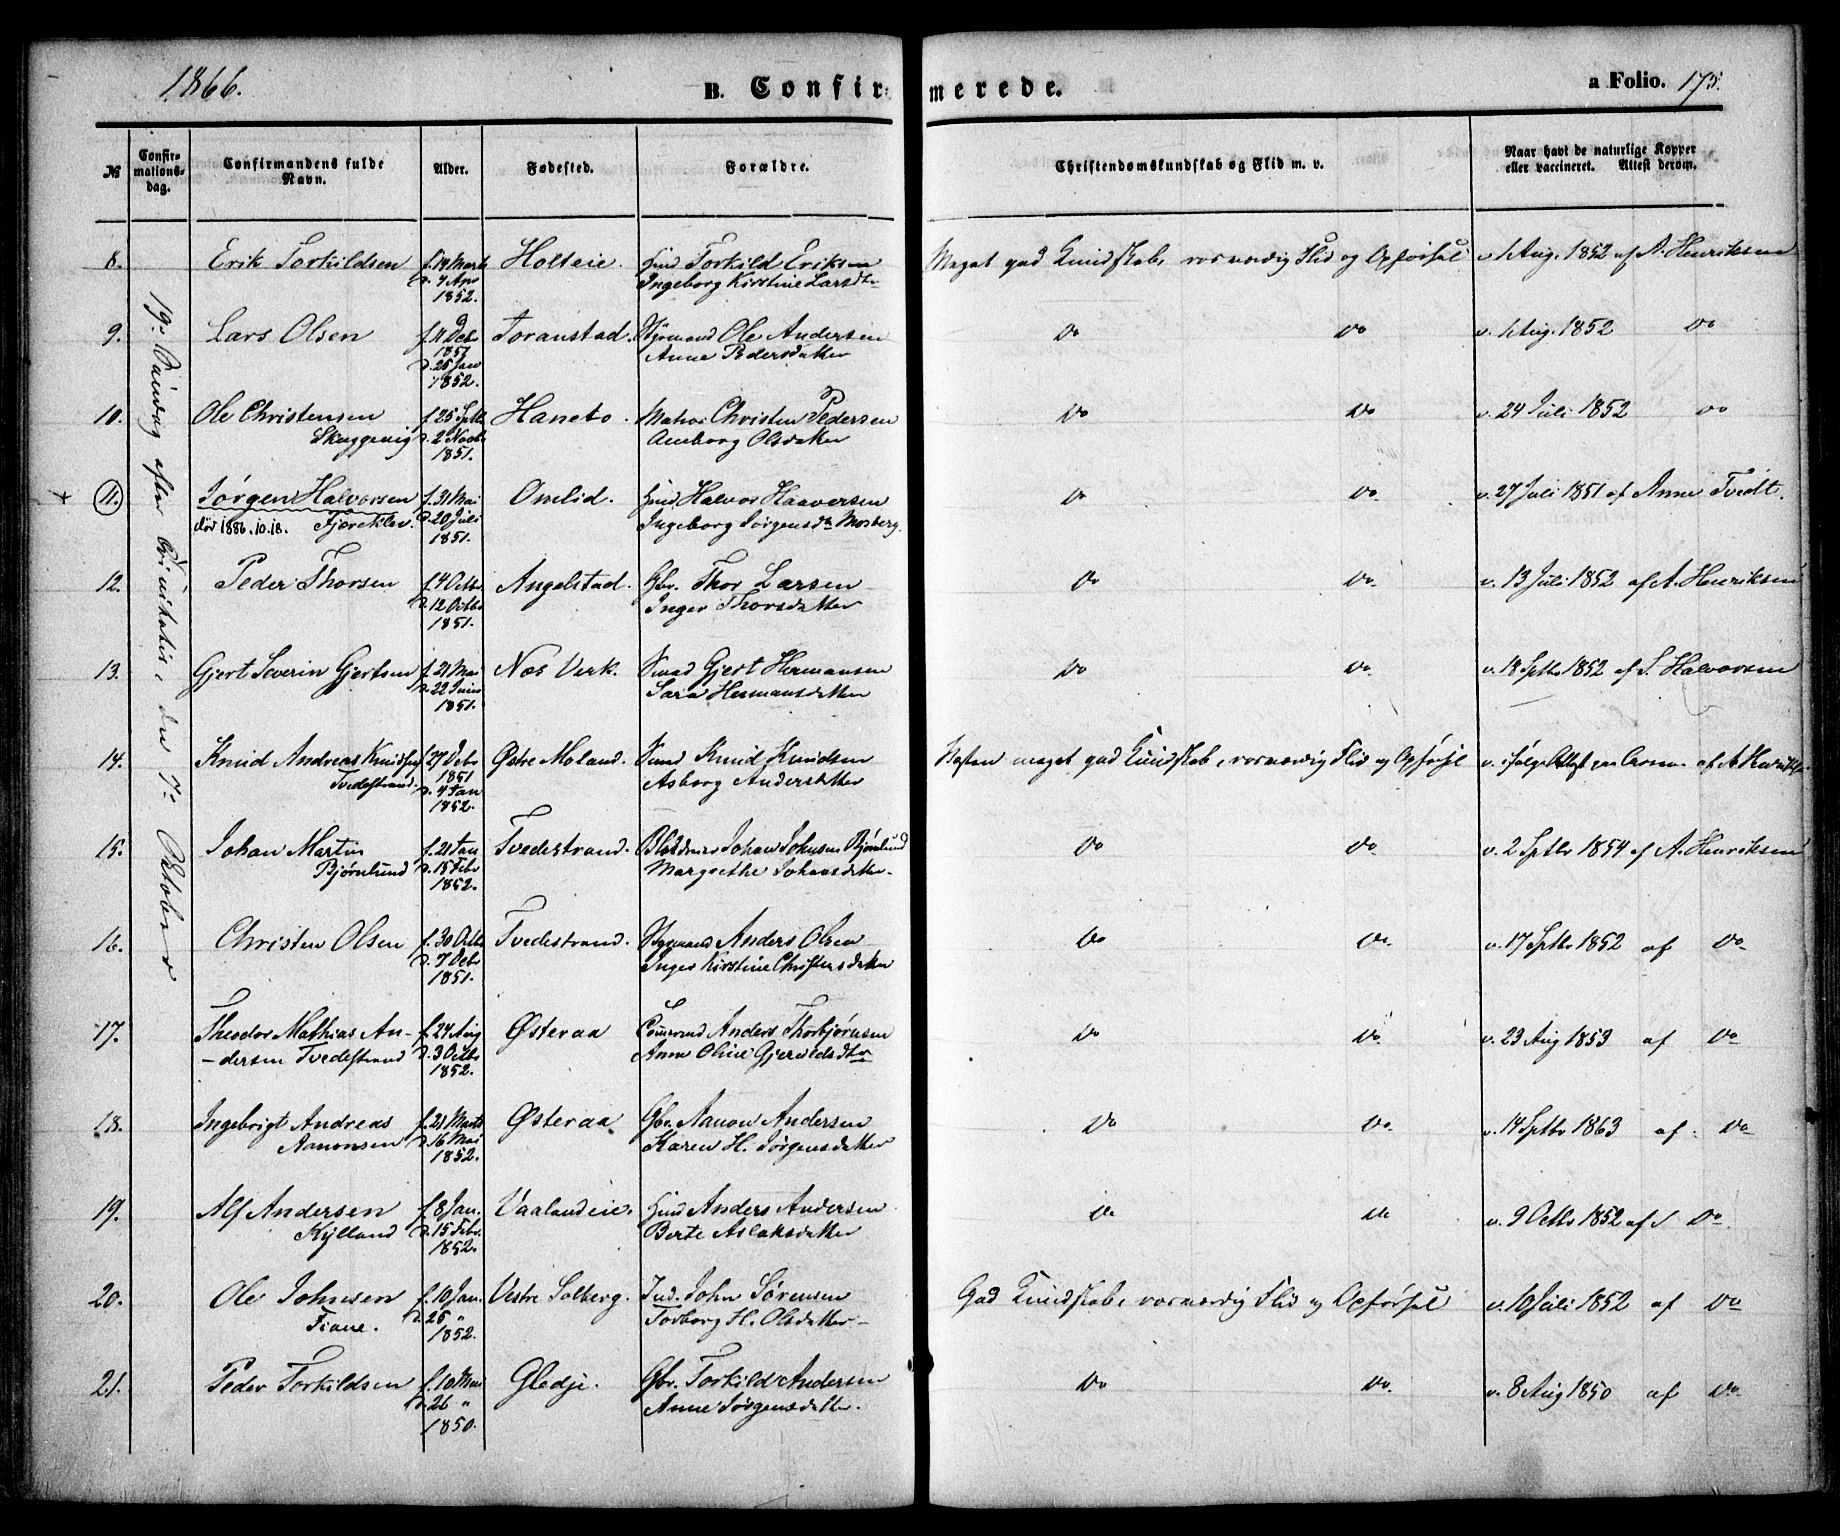 1866.
B. Confirmerede.
a Folio. 175.
№
Confirmationsdag.
Confirmandens fulde Navn.
Alder.
Fødested.
Forældre.
Christendomskundskab og Flid m. v.
Naar havt de naturlige Kopper eller vaccineret. Attest derom.
19. Søndag efter Trinitatis, den 7. October
8. Erik Torkildsen f. 19 Marts Holteie. Hmd Torkild Eriksen Meget god Kundskab, rosværdig Flid og Opførsel v. 1 Aug. 1852 af A. Henriksen
d. 4 Apr Ingeborg Kirstine Larsdtr
1852.
9. Lars Olsen Toranstad. Styrmand Ole Andersen Do Do v. 1 Aug. 1852 Do
1851 Anne Pedersdatter
d. 25 Jan
1852.
10. Ole Christensen f. 25 Sptb Haneto. Matros Christen Pedersen Do Do v. 24 Juli 1852 Do
Skuggevig d. 2 Novb Olsdatter
1851.
11. Jørgen Halvorsen f. 31 Mai Omlid. Hmd Halvor Haaversen Do Do v. 27 Juli 1851 af Anne Tvedt.
død 1886.10.18. Fjæreklev. d. 20 Juli Ingeborg Jørgensdtr Mosberg.
1851.
12. Peder Thorsen f. 4 Octbr Angelstad. Gbr. Thor Larsen Do Do v. 13 Juli 1852 af A. Henriksen
d. 12 Octbr Inger Thorsdatter
1851.
13. Gjert Severin Gjertsen f. 21 Mai Næs Verk. Smed Gjert Hermansen Do Do v. 18 Sptbr 1852 af S. Halvorsen
d. 22 Juni Sara Hermansdatter
1851.
14. Knud Andreas Knudsen f. 27 Debr Østre Moland. Knud Knudsen Næsten meget god Kundskab, rosværdig Flid og Opførsel v. ifølge Attest af A. Henriksen
Tvedestrand. 1851 Asborg Andersdatter
d. 4 Jan
1852.
15. Johan Martin f. 21 Jan Tvedestrand. Johan Johnsen Bjørnlund Do Do v. 2 Sptbr 1854 af A. Henriksen
Bjørnlund d. 15 Febr Margrethe Johansdatter
1852.
16. Christen Olsen f. 30 Octb Tvedestrand. Styrmand Anders Olsen Do Do v. 17 Sptbr 1852 af Do
d. 7 Debr Inger Kirstine Christensdatter
1851.
17. Theodor Mathias An- f. 24 Aug Østeraa Anders Thorbjørnsen Do Do v. 23 Aug 1853 af Do
-dersen Tvedestrand d. 3 Octbr Anne Oline Gjeruldsdtr
1852.
18. Ingebrigt Andreas f. 21 Marts Østeraa Gbr. Aanon Andersen Do Do v. 14 Sptbr 1863 af Do
Aanonsen d. 16 Mai Karen H. Jørgensdatter
1852.
19. Alf Andersen f. 8 Jan. Vaalandeie. Hmd Anders Andersen Do Do v. 9 Octbr 1852 af Do
Kylland d. 15 Febr. Berte Aslaksdatter
1852.
20. Ole Johnsen f. 10 Jan. Vestre Solberg. Ind. John Sørensen God Kundskab, rosværdig Flid og Opførsel v. 10 Juli 1852 af Do
Fiane. d. 25 " Torborg H. Olsdatter
1852.
21. Peder Torkildsen f. 10 Mai Gledje. Gbr. Torkild Andersen Do Do v. 8 Aug 1850 af Do
d. 26 " Anne Jørgensdatter.
1850.